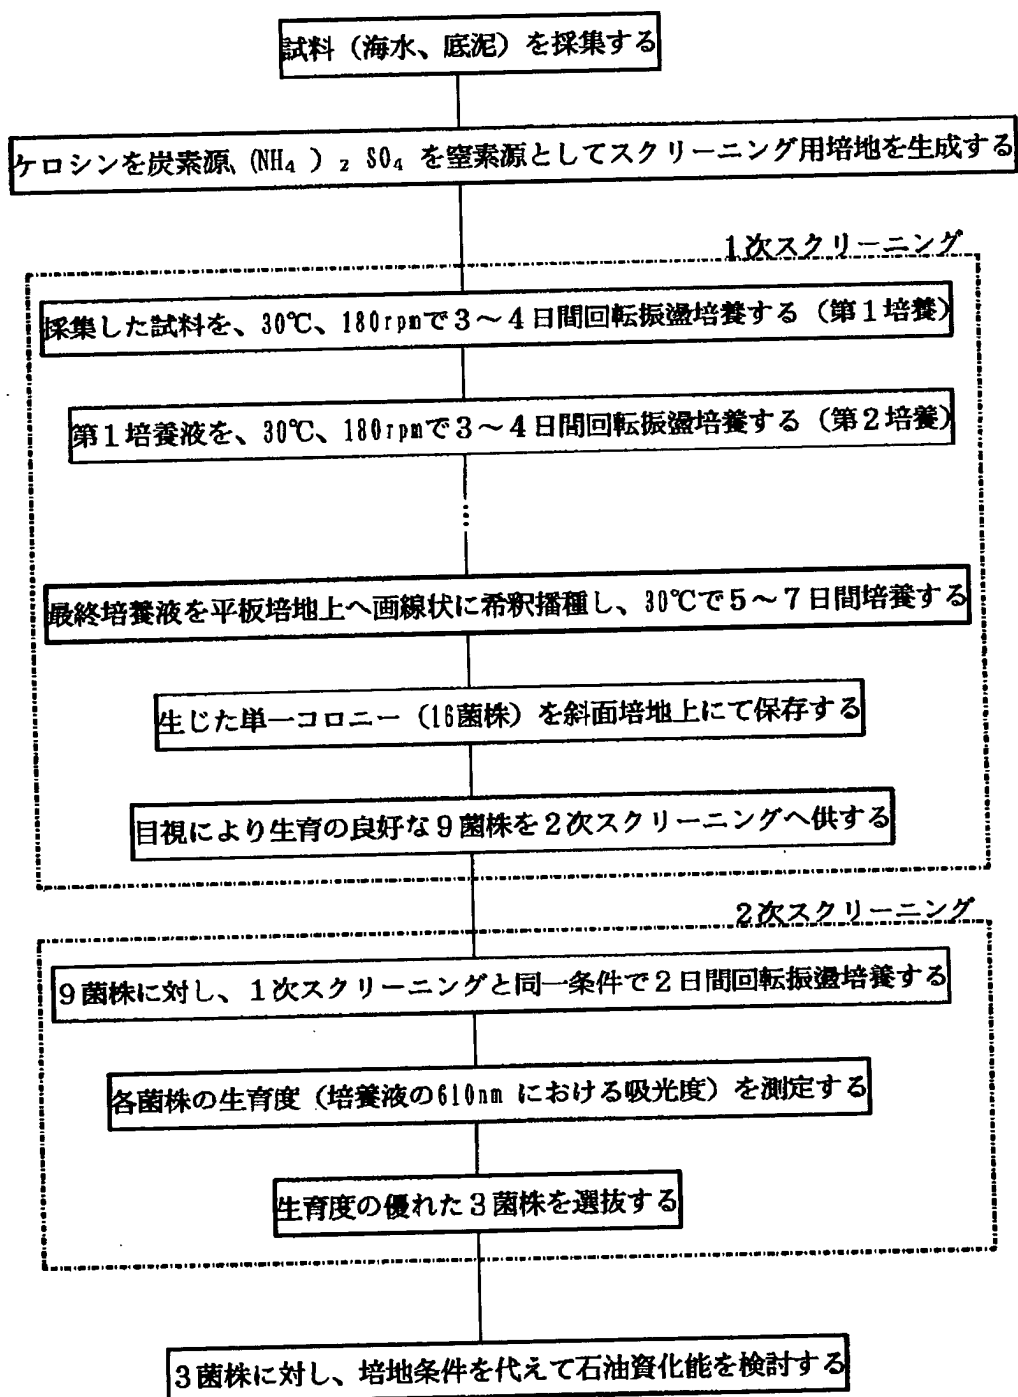 試料（海水、底泥）を採集する
ケロシンを炭素源、(NH₄)₂ SO₄ を窒素源としてスクリーニング用培地を生成する
1次スクリーニング
採集した試料を、30℃、180rpmで3～4日間回転振盪培養する（第1培養）
第1培養液を、30℃、180rpmで3～4日間回転振盪培養する（第2培養）
最終培養液を平板培地上へ画線状に希釈播種し、30℃で5～7日間培養する
生じた単一コロニー（16菌株）を斜面培地上にて保存する
目視により生育の良好な9菌株を2次スクリーニングへ供する
2次スクリーニング
9菌株に対し、1次スクリーニングと同一条件で2日間回転振盪培養する
各菌株の生育度（培養液の610nm における吸光度）を測定する
生育度の優れた3菌株を選抜する
3菌株に対し、培地条件を代えて石油資化能を検討する